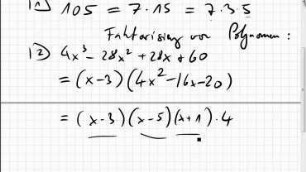 1) 105 = 7·15 = 7·3·5
Faktorising von Polynomen:
2) 4x³ - 28x² + 28x + 60
= (x-3)(4x² - 16x - 20)
= (x-3)(x-5)(x+1)·4